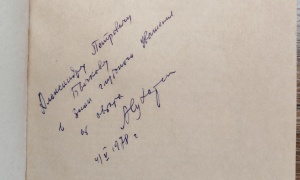 Александру Петровичу
Бычкову
в знак глубокого уважения
от автора
4/V 1978 г.